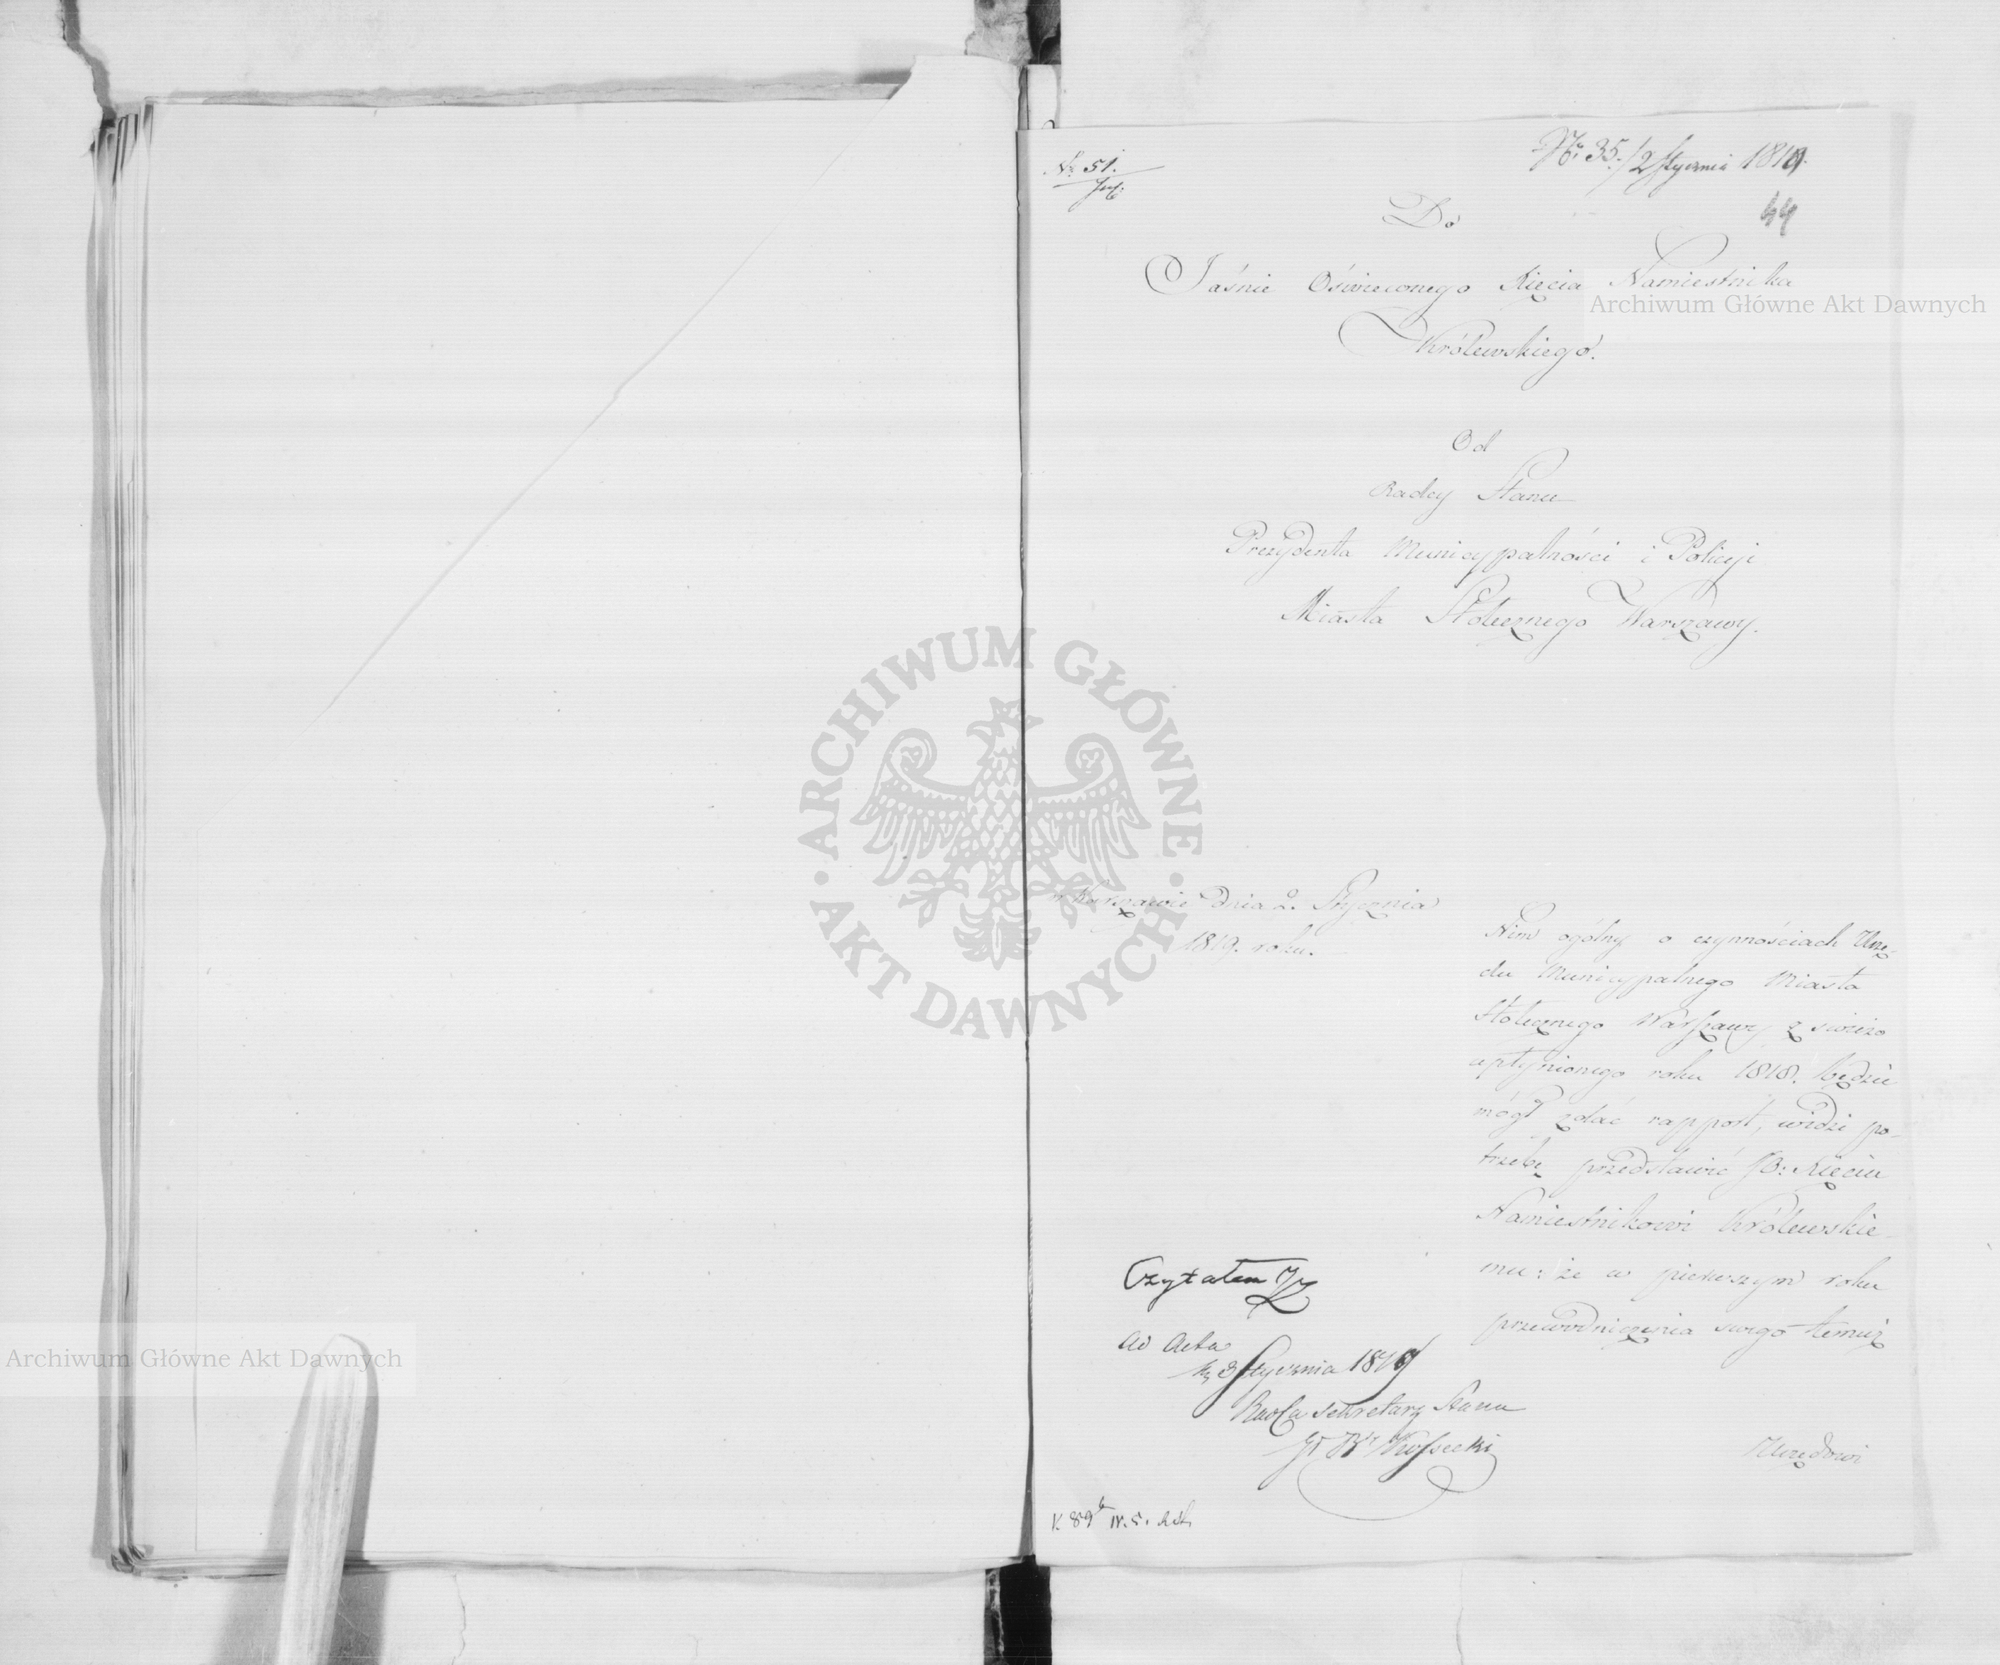 No 51.
No 35./2 Stycznia 1819.
44
Do
Jaśnie Oświeconego Xięcia Namiestnika
Królewskiego.
Od
Radcy Stanu
Prezydenta Municypalności i Policyi
Miasta Stołecznego Warszawy.
w Warszawie dnia 2. Stycznia
1819. roku.
Nim ogólny o czynnościach Urzę-
du Municypalnego Miasta
Stołecznego Warszawy z świeżo
upłynionego roku 1818. będzie
mógł zdać rapport, widzi po-
trzebę przedstawić JO: Xięciu
Namiestnikowi Królewskie-
mu: że w pierwszym roku
przewodniczenia swego temuż
Urzędowi
Czytałem
ad Acta
3 Stycznia 1819
Radca Sekretarz Stanu
Kossecki
K 89 IV. 5.
Archiwum Główne Akt Dawnych
Archiwum Główne Akt Dawnych
ARCHIWUM GŁÓWNE
AKT DAWNYCH